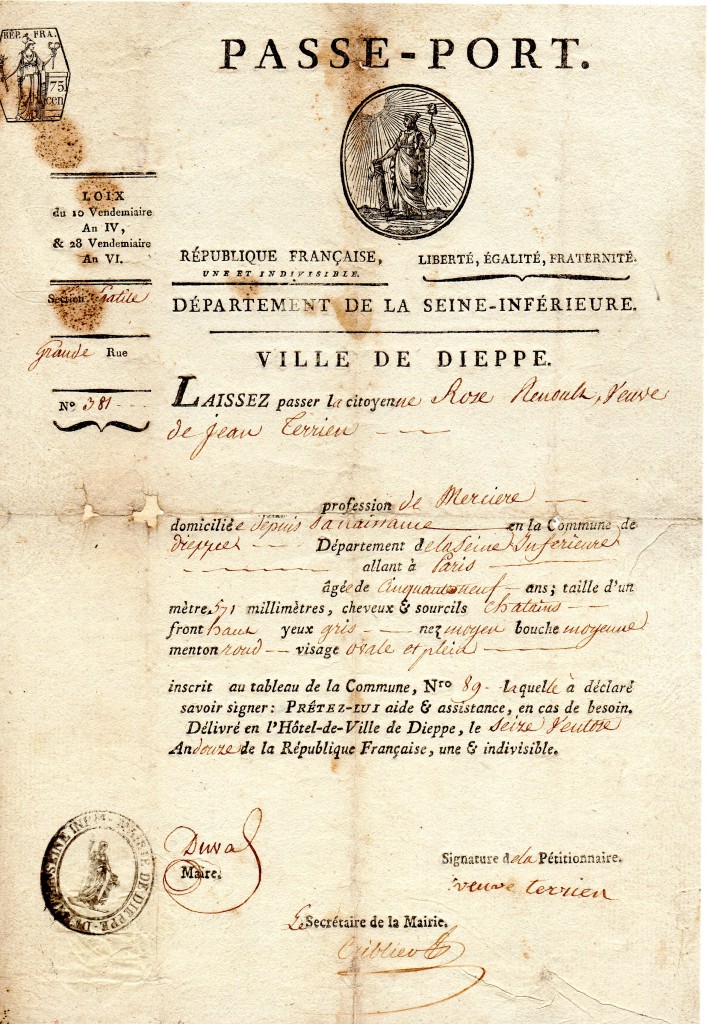 RÉP. FRA.
75
cen
PASSE-PORT.
LOIX
du 10 Vendemiaire
An IV,
& 28 Vendemiaire
An VI.
RÉPUBLIQUE FRANÇAISE,
UNE ET INDIVISIBLE.
LIBERTÉ, ÉGALITÉ, FRATERNITÉ.
Section
DÉPARTEMENT DE LA SEINE-INFÉRIEURE.
Grande Rue
VILLE DE DIEPPE.
No 381
LAISSEZ passer la citoyenne Rose Renoult, Veuve
de jean Terrien
profession de Merciere
domiciliée depuis sa naissance en la Commune de
dieppe Département de la Seine Inferieure
allant à Paris
âgée de Cinquante neuf ans; taille d'un
mètre 571 millimètres, cheveux & sourcils chatains
front haut yeux gris nez moyen bouche moyenne
menton rond visage ovale et plein
inscrit au tableau de la Commune, Nro 89 laquelle à déclaré
savoir signer: PRÊTEZ-LUI aide & assistance, en cas de besoin.
Délivré en l'Hôtel-de-Ville de Dieppe, le Seize Ventose
An douze de la République Française, une & indivisible.
MAIRIE DE DIEPPE
SEINE INFRE
Duval
Maire.
Signature de la Pétitionnaire.
veuve terrien
Le Secrétaire de la Mairie.